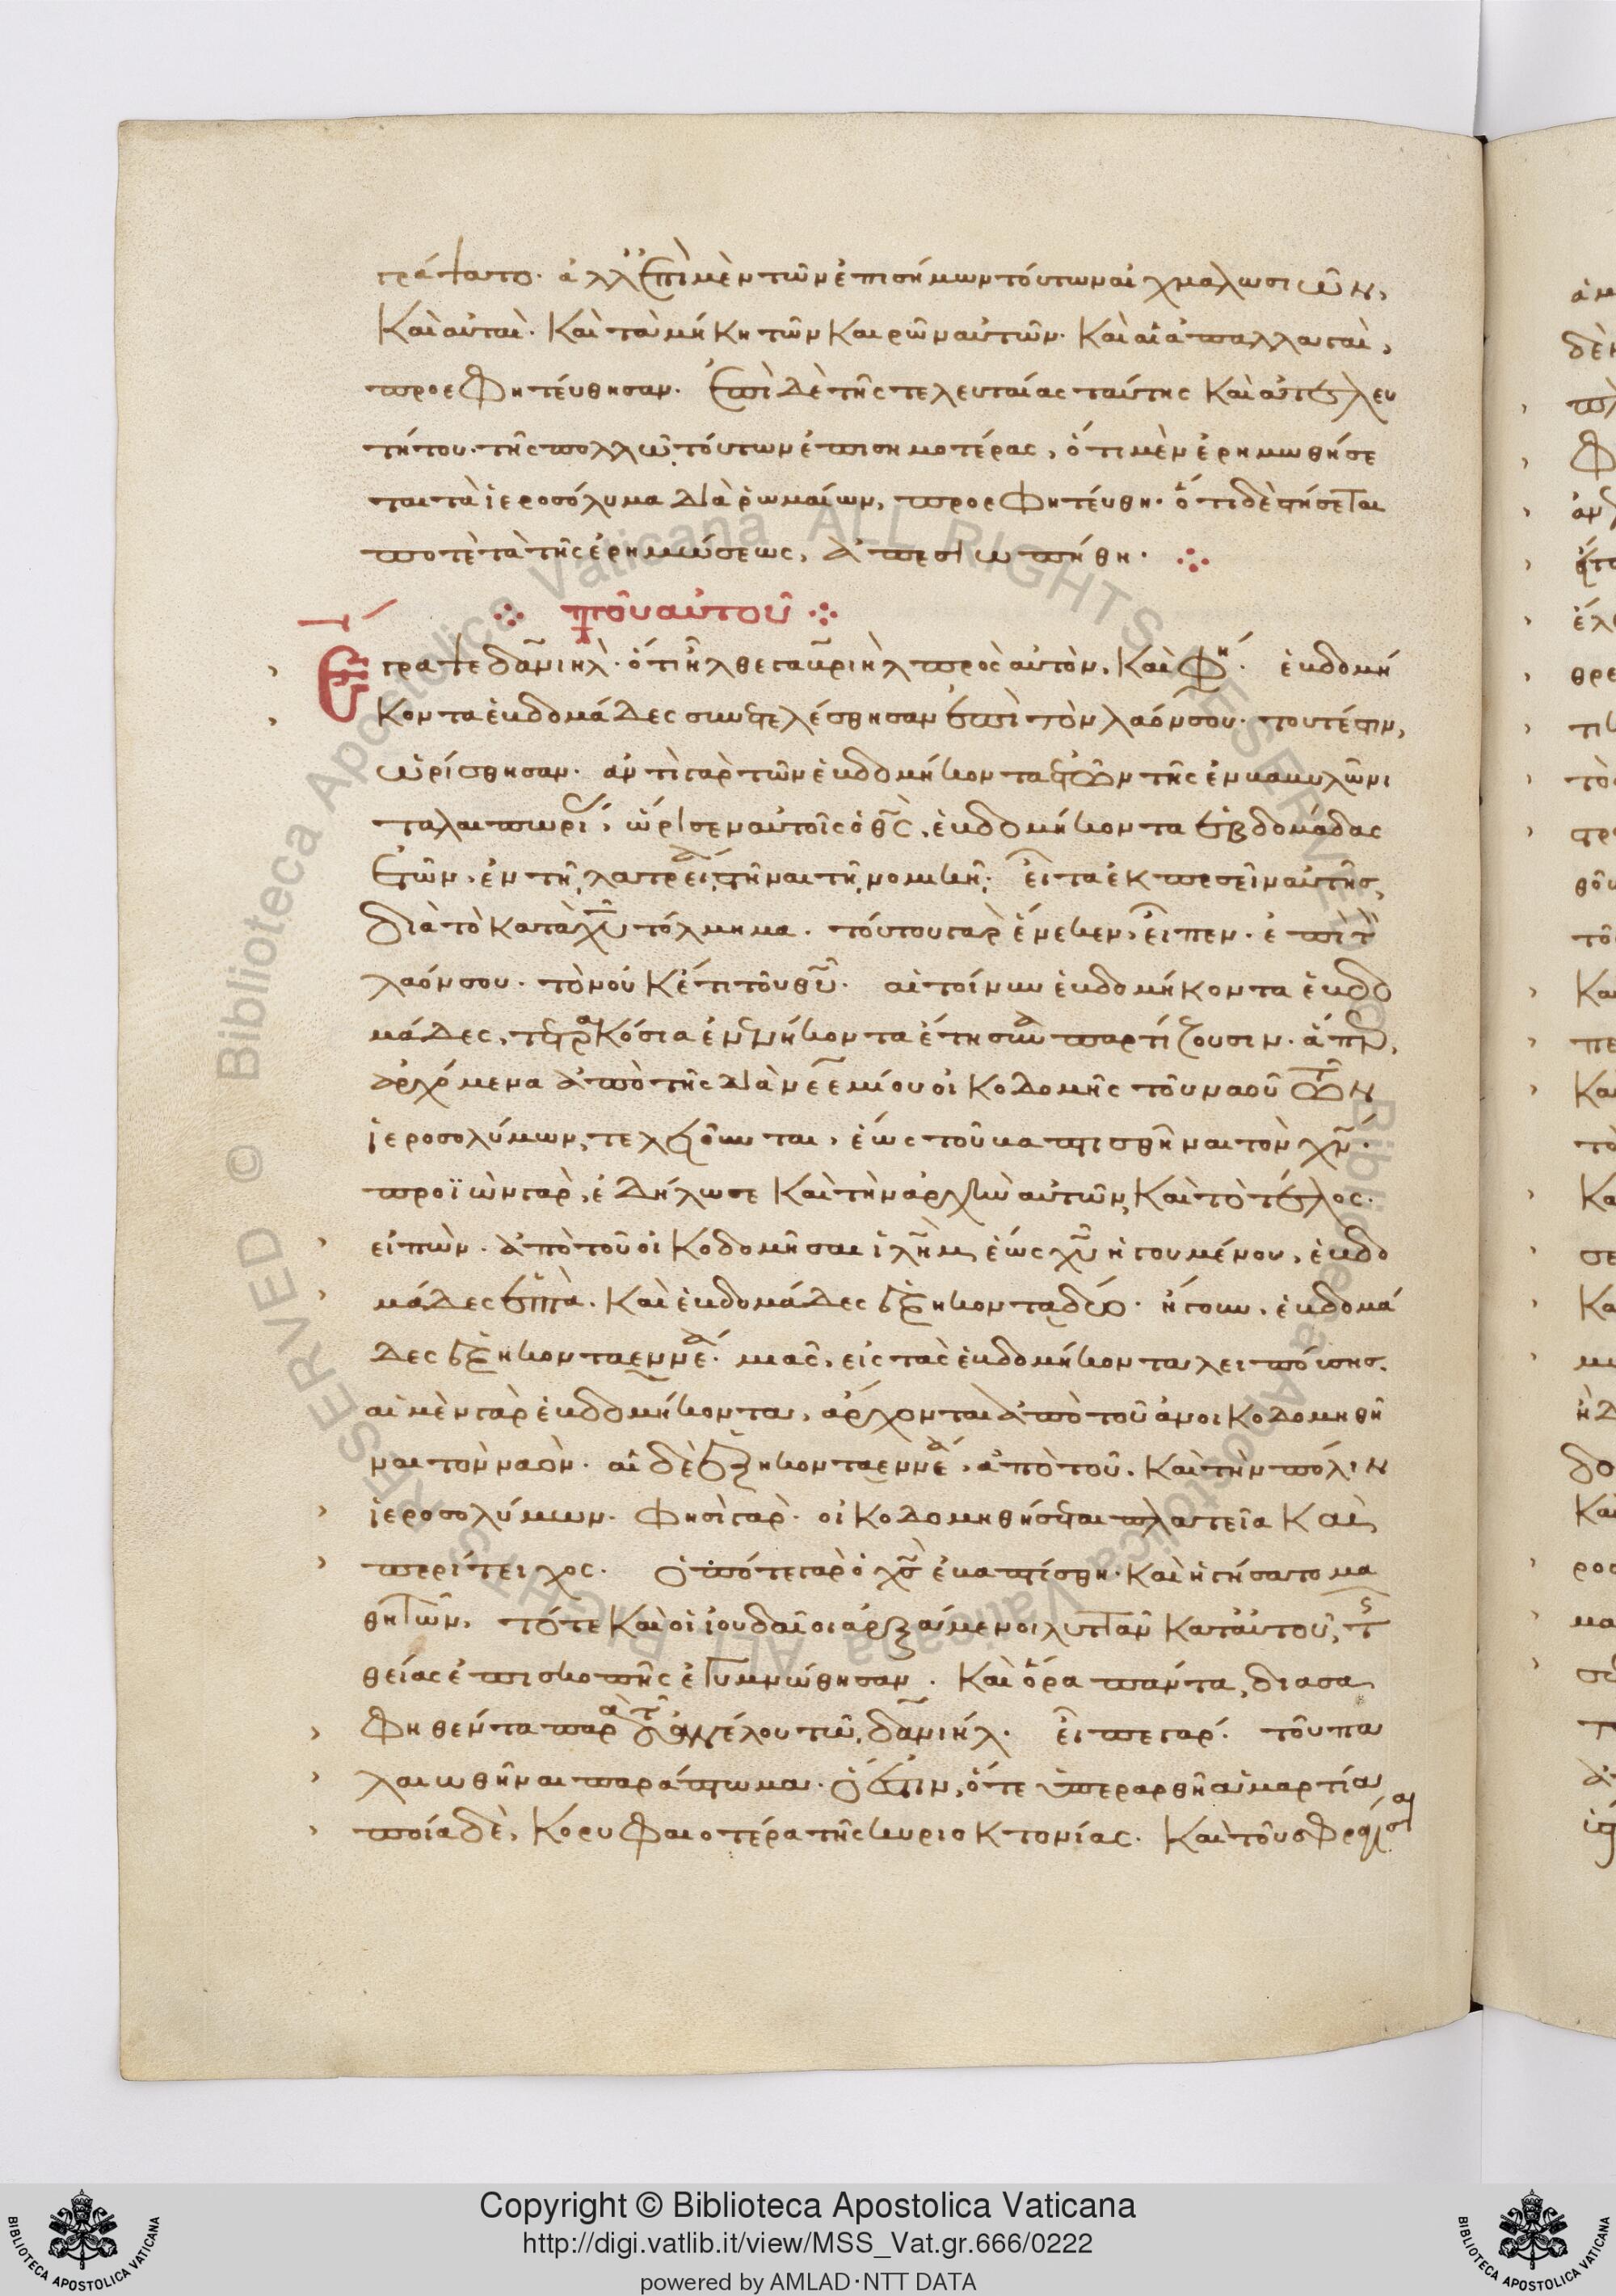 γράψατο. ἀλλ' ἐπὶ μὲν τῶν ἐπισήμων τούτων αἰχμαλωσιῶν,
καὶ αὐταὶ. καὶ τὰ μήκη τῶν καιρῶν αὐτῶν. καὶ αἱ ἀπαλλαγαὶ,
προεφητεύθησαν. ἐπὶ δὲ τῆς τελευταίας ταύτης καὶ ἀτελευ
τήτου. τῆς πολλῶ τούτων ἐπισημοτέρας, ὅτι μὲν ἐρημωθήσε
ται τὰ ἱεροσόλυμα διὰ ῥωμαίων, προεφητεύθη. ὅτι δὲ στήσεται
ποτὲ τὰ τῆς ἐρημώσεως, ἀπεσιωπήθη.
τοῦ αὐτοῦ
Ἔγραψε δανιὴλ. ὅτι ἦλθε γαβριὴλ πρὸς αὐτὸν, καὶ φη. ἑβδομή
κοντα ἑβδομάδες συνετελέσθησαν ἐπὶ τὸν λαόν σου. τουτέστιν,
ὡρίσθησαν. ἀντὶ γὰρ τῶν ἑβδομήκοντα ἐτῶν τῆς ἐν βαβυλῶνι
ταλαιπωρί, ὥρισεν αὐτοῖς ὁ θς, ἑβδομήκοντα ἑβδομάδας
ἐτῶν, ἐν τῆ λατρεία στῆναι τῆ νομικῆ. εἶτα ἐκπεσεῖν αὐτῆς,
διὰ τὸ κατὰ χυ τόλμημα. τούτου γὰρ ἕνεκεν, εἶπεν. ἐπὶ τ
λαόν σου. τὸν οὐκέτι τοῦ θυ. αἱ τοίνυν ἑβδομήκοντα ἑβδο
μάδες, τετρακόσια ἐννενήκοντα ἔτη συναπαρτίζουσιν. ἅπερ,
ἀρχόμενα ἀπὸ τῆς διὰ νεεμίου οἰκοδομῆς τοῦ ναοῦ τῶν
ἱεροσολύμων, τελειοῦνται, ἕως τοῦ βαπτισθῆναι τὸν χν.
προϊὼν γὰρ, ἐδήλωσε καὶ τὴν ἀρχὴν αὐτῶν, καὶ τὸ τέλος.
εἰπὼν. ἀπὸ τοῦ οἰκοδομῆσαι ἱλημ, ἕως χυ ἡγουμένου, ἑβδο
μάδες ἑπτὰ. καὶ ἑβδομάδες ἑξήκοντα δύο. ἤγουν, ἑβδομά
δες ἑξήκοντα ἐννέα. μιᾶς, εἰς τὰς ἑβδομήκοντα λειπούσης.
αἱ μὲν γὰρ ἑβδομήκοντα, ἄρχονται ἀπὸ τοῦ ἀνοικοδομηθῆ
ναι τὸν ναὸν. αἱ δὲ ἑξήκοντα ἐννέα, ἀπὸ τοῦ, καὶ τὴν πόλιν
ἱεροσολύμων. φησὶ γὰρ. οἰκοδομηθήσεται πλατεῖα καὶ
περίτειχος. ὁπότε γὰρ ὁ χς ἐβαπτίσθη. καὶ ἡγήσατο μα
θητῶν, τότε καὶ οἱ ἰουδαῖοι ἀρξάμενοι λυττᾶν κατ' αὐτοῦ, τ
θείας ἐπισκοπῆς ἐγυμνώθησαν. καὶ ὅρα πάντα, διασα
φηθέντα παρὰ τοῦ ἀγγέλου τῶ δανιήλ. εἶπε γὰρ. τοῦ πα
λαιωθῆναι παράπτωμα. ὅ ἐστιν, ὅτε ὑπεραρθῆ ἁμαρτία
ποία δὲ, κορυφαιοτέρα τῆς κυριοκτονίας. καὶ τοῦ σφραγίσαι